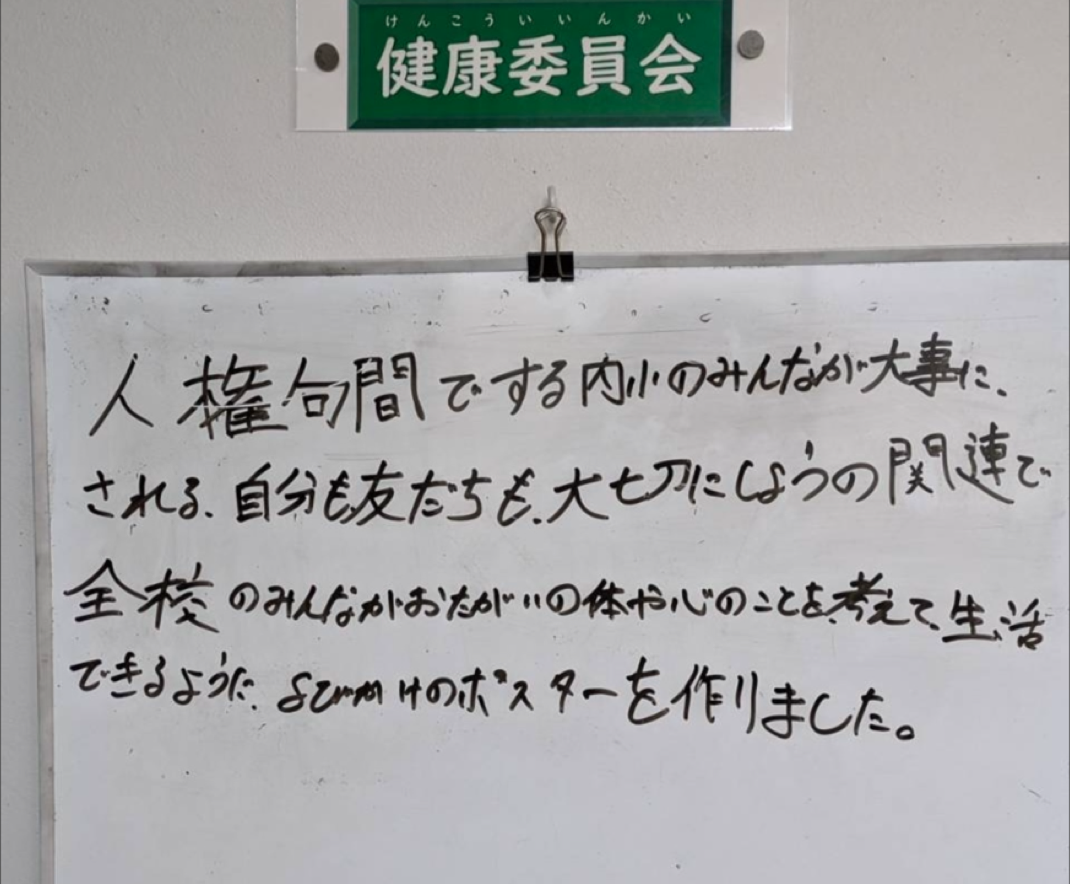 けんこういいんかい
健康委員会
人権旬間でする内小のみんなが大事に、
される、自分も友だちも、大切にしようの関連で
全校のみんながおたがいの体や心のことを、考えて、生活
できるように、よびかけのポスターを作りました。